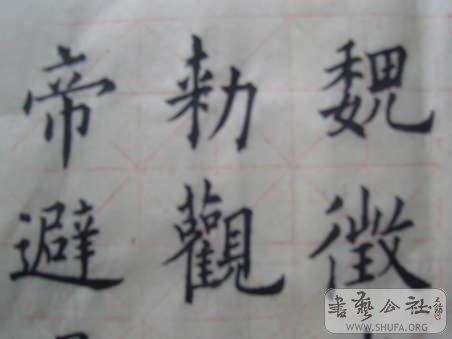 魏徵
勑觀
帝避
書藝公社
WWW.SHUFA.ORG